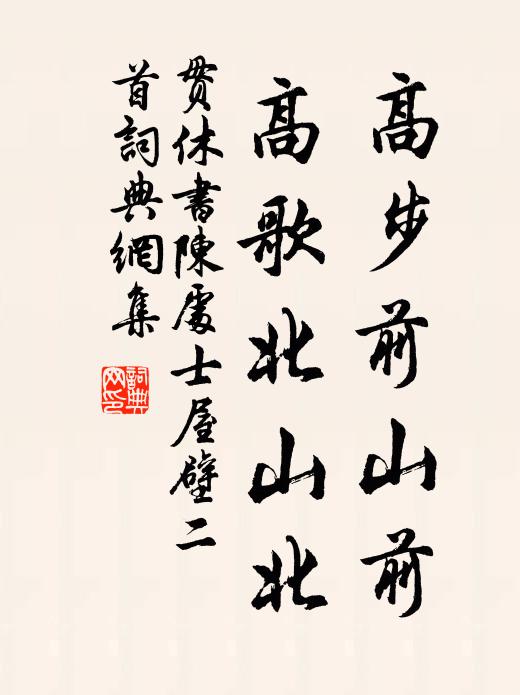 高步前山前
高歌北山北
贯休書陳處士屋壁二
首詞典網集
詞典網印